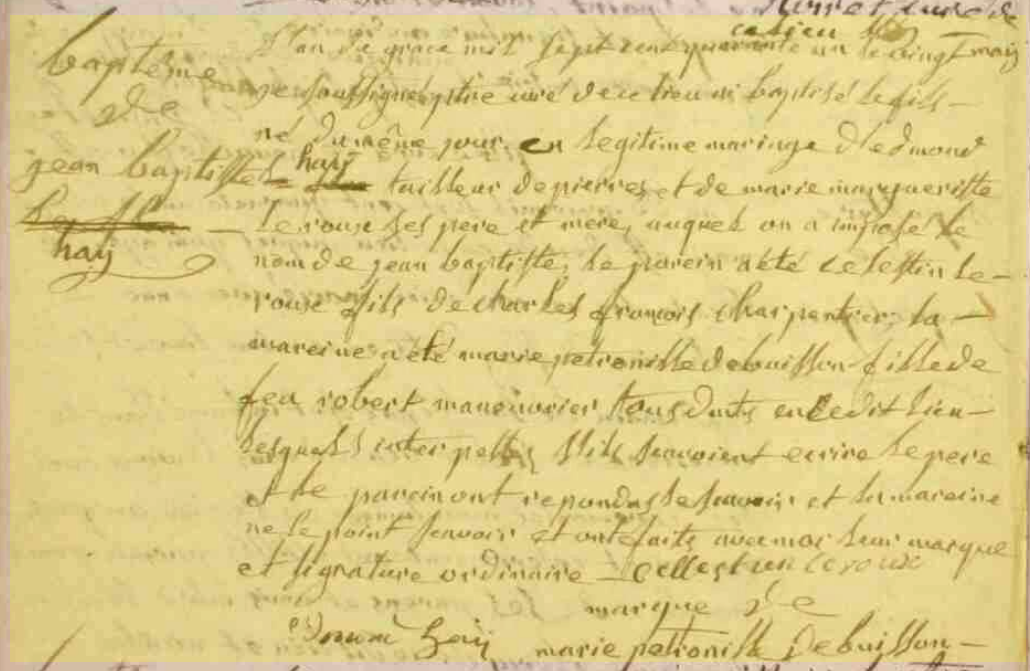 curé de
ce lieu
baptême
de
jean baptiste
hay
L'an de grace mil sept cent quarante un le vingt may
je soussigné ptre curé de ce lieu ai baptisé le fils
né du même jour en legitime mariage d'edmond
hay tailleur de pierres et de marie margueritte
Leroux ses pere et mere, auquel on a imposé le
nom de jean baptiste, le parein a été celestin le-
roux fils de charles françois charpentier, la
mareine a été marie petronille debuisson fille de
feu robert manouvrier tous duts en ledit lieu
lesquels interpellez s'ils scavoient ecrire le pere
et le parein ont repondus le scavoir et la mareine
ne le point scavoir et ont faits avec moi leur marque
et signature ordinaire celestin leroux
marque de
Edmon hay marie petronille debuisson